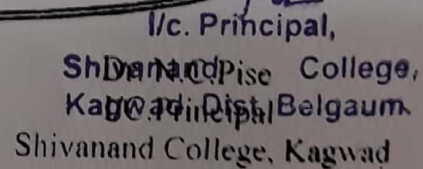 I/c. Principal,
Shivanand College,
Dr. N.C.Pise
Kagwad Dist Belgaum
I/C. Principal
Shivanand College, Kagwad